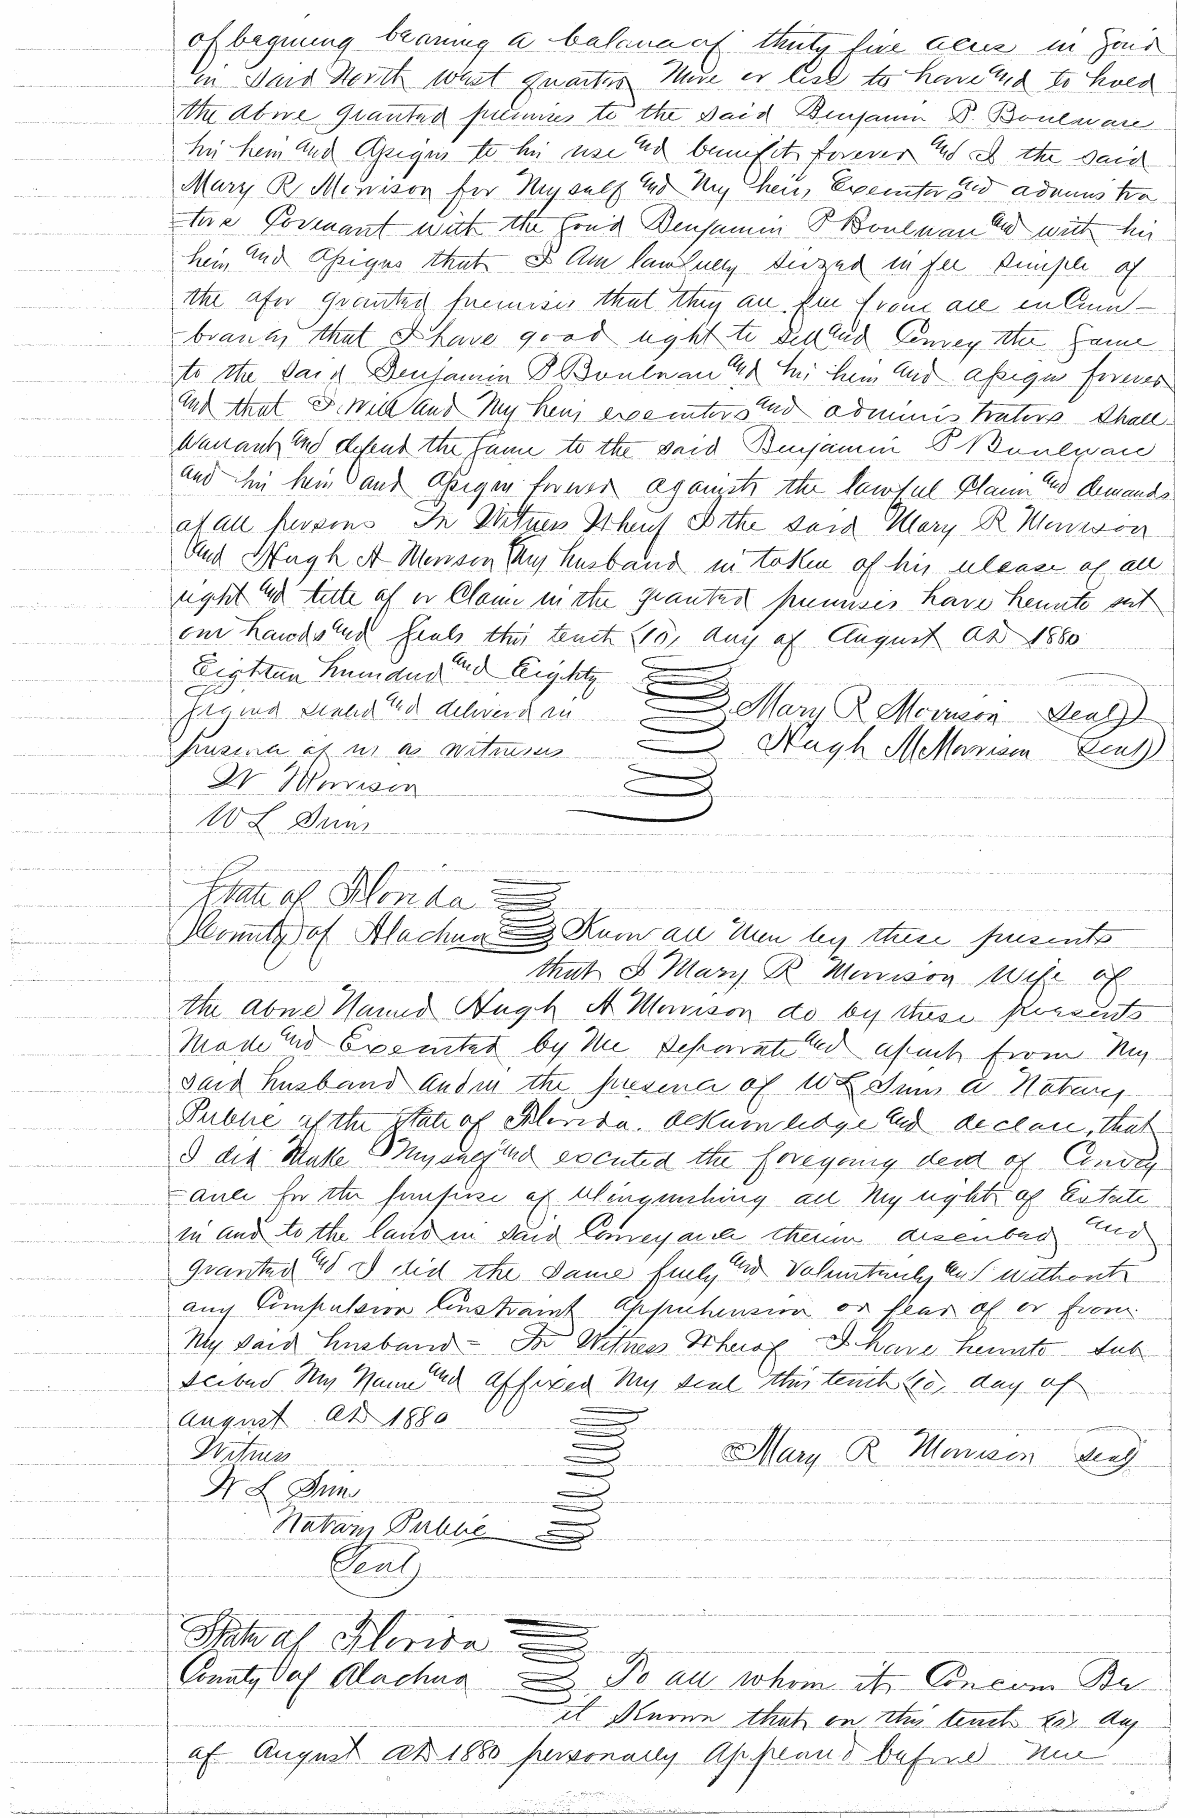 of begining bearing a balance of thirty five acres in said
in said North West quarter More or less to have and to hold
the above granted premises to the said Benjamin P. Boulware
his heirs and Assigns to his use and benefit forever and I the said
Mary R Morrison for Myself and My heirs, Executors and administra
tors Covenant with the said Benjamin P Boulware and with his
heirs and Assigns that I Am lawfully siezed in fee simple of
the afor granted premises that they are free from all encum-
brances that I have good right to sell and Convey the same
to the said Benjamin P Boulware and his heirs and assigns forever
and that I will and My heirs executors and administrators shall
warrant and defend the same to the said Benjamin P Boulware
and his heirs and Assigns forever against the lawful Claim and demands
of all persons In Witness Whereof I the said Mary R Morrison
and Hugh A Morrison My husband in token of his release of all
right and title of or Claim in the granted premises have hereunto set
our hands and seals this tenth (10) day of August AD 1880
Eighteen hundred and Eighty
Signed sealed and delivered in
presence of us as witnesses
Mary R Morrison Seal
Hugh M Morrison Seal
W Morrison
W L Sims
State of Florida
County of Alachua Know all Men by these presents
that I Mary R Morrison Wife of
the above Named Hugh A Morrison do by these presents
Made and Executed by Me separate and apart from My
said husband and in the presence of W L Sims a Notary
Public of the State of Florida. acknowledge and declare, that
I did Make Myself and excuted the foregoing deed of Convey
-ance for the purpose of relinguishing all My right of Estate
in and to the land in said Conveyance therein described and
granted and I did the same freely and Voluntarily and without
any Compulsion Constraint Apprehension or fear of or from
My said husband - In Witness Whereof I have hereunto sub
scibed My Name and affixed My seal this tenth (10) day of
August AD 1880
Witness
Mary R Morrison Seal
W L Sims
Notary Public
Seal
State of Florida
County of Alachua To all whom it Concern Be
it Known that on this tenth (10) day
of August AD 1880 personally Appeared before Me